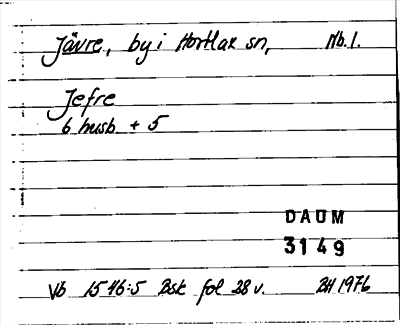 Jävre, by i Hortlax sn, Nb.l.
Jefre
6 husb + 5
DAUM
3149
Vb 1546:5 Bsk fol 28 v. BH 1976